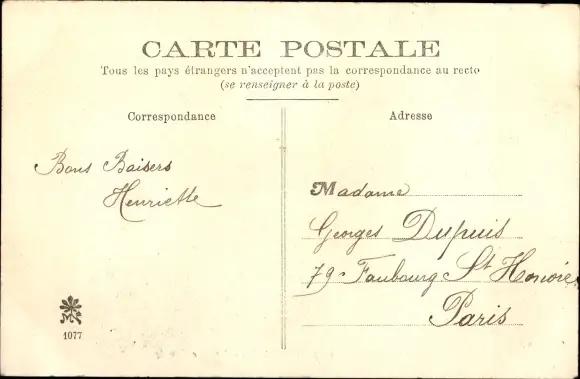 CARTE POSTALE
Tous les pays étrangers n'acceptent pas la correspondance au recto
(se renseigner à la poste)
Correspondance
Adresse
Bons Baisers
Henriette
Madame
Georges Dupuis
79 Faubourg St Honoré
Paris
1077